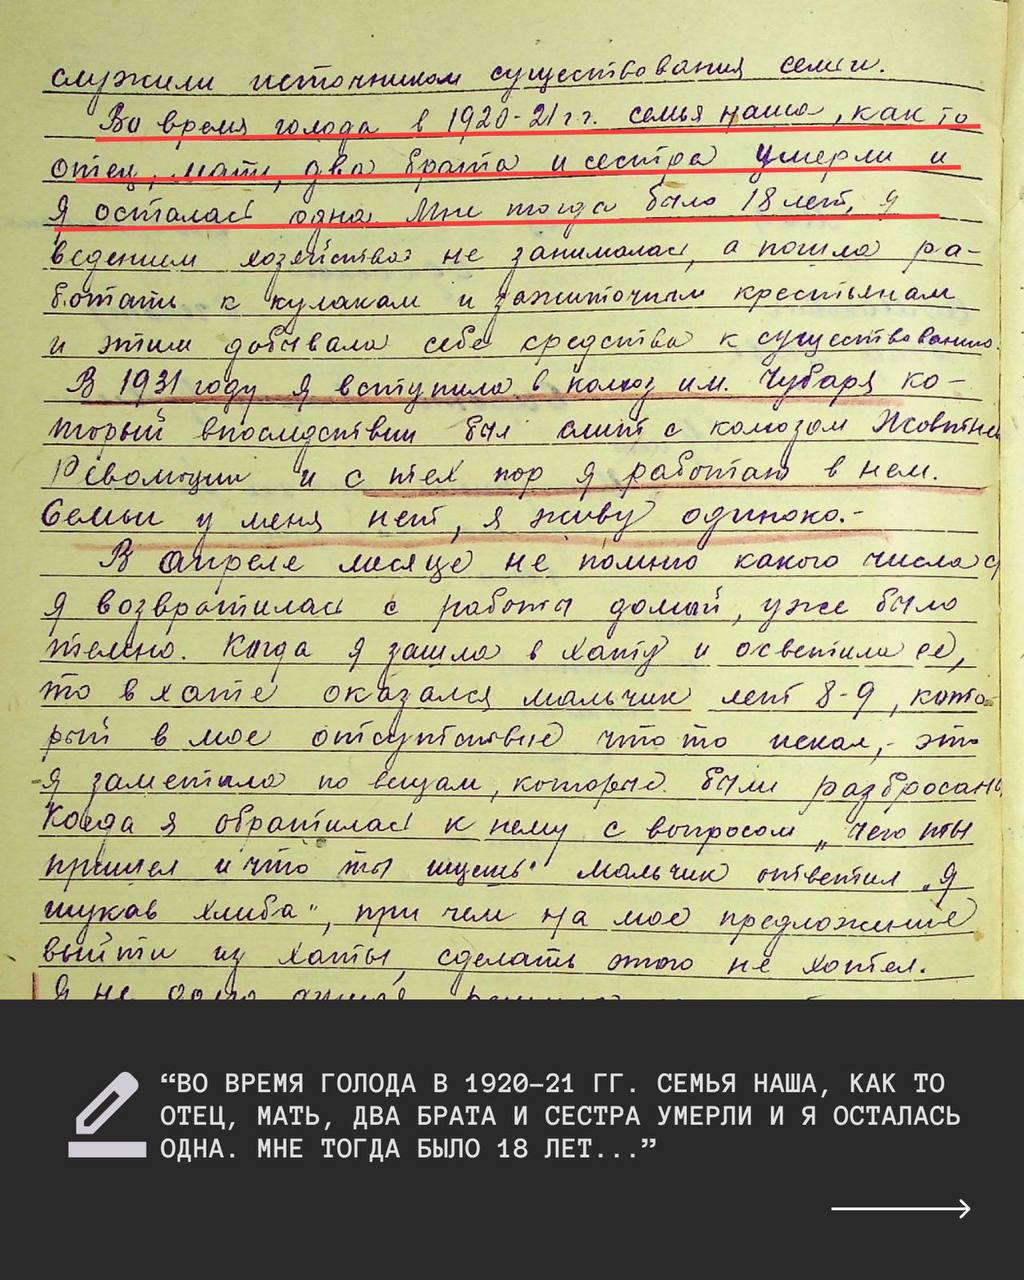 служили источником существования семьи.
Во время голода в 1920-21 г.г. семья наша, как то
отец, мать, два брата и сестра умерли и
я осталась одна. Мне тогда было 18 лет, я
ведением хозяйства не занималась, а пошла ра-
ботать к кулакам и зажиточным крестьянам
и этим добывала себе средства к существованию.
В 1931 году я вступила в колхоз им. Чубаря ко-
торый впоследствии был слит с колхозом Жовтнев
Революции и с тех пор я работаю в нем.
Семьи у меня нет, я живу одиноко.-
В апреле месяце не помню какого числа
я возвратилась с работы домой, уже было
темно. Когда я зашла в хату и осветила ее,
то в хате оказался мальчик лет 8-9, кото-
рый в мое отсутствие что то искал,- это
я заметила по вещам, которые были разбросаны
Когда я обратилась к нему с вопросом „чего ты
пришел и что ты ищешь" мальчик ответил „Я
шукав хлиба", при чем на мое предложение
выйти из хаты, сделать этого не хотел.
Я не
“ВО ВРЕМЯ ГОЛОДА В 1920–21 ГГ. СЕМЬЯ НАША, КАК ТО
ОТЕЦ, МАТЬ, ДВА БРАТА И СЕСТРА УМЕРЛИ И Я ОСТАЛАСЬ
ОДНА. МНЕ ТОГДА БЫЛО 18 ЛЕТ...”